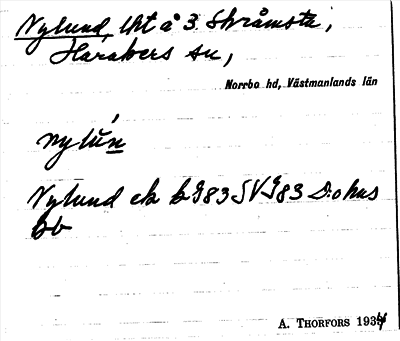 Nylund, lht å 3. Skråmsta,
Harakers sn,
Norrbo hd, Västmanlands län
nylún
Nylund ek bG83SVG83 D:o hus
Bb
A. THORFORS 1934